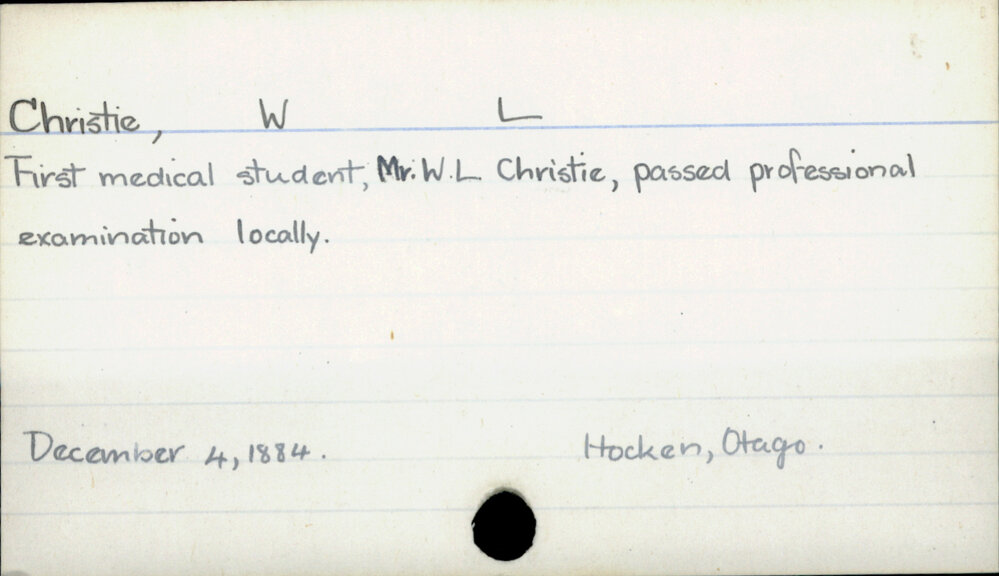 Christie, W L
First medical student, Mr. W.L Christie, passed professional
examination locally.
December 4, 1884. Hocken, Otago.